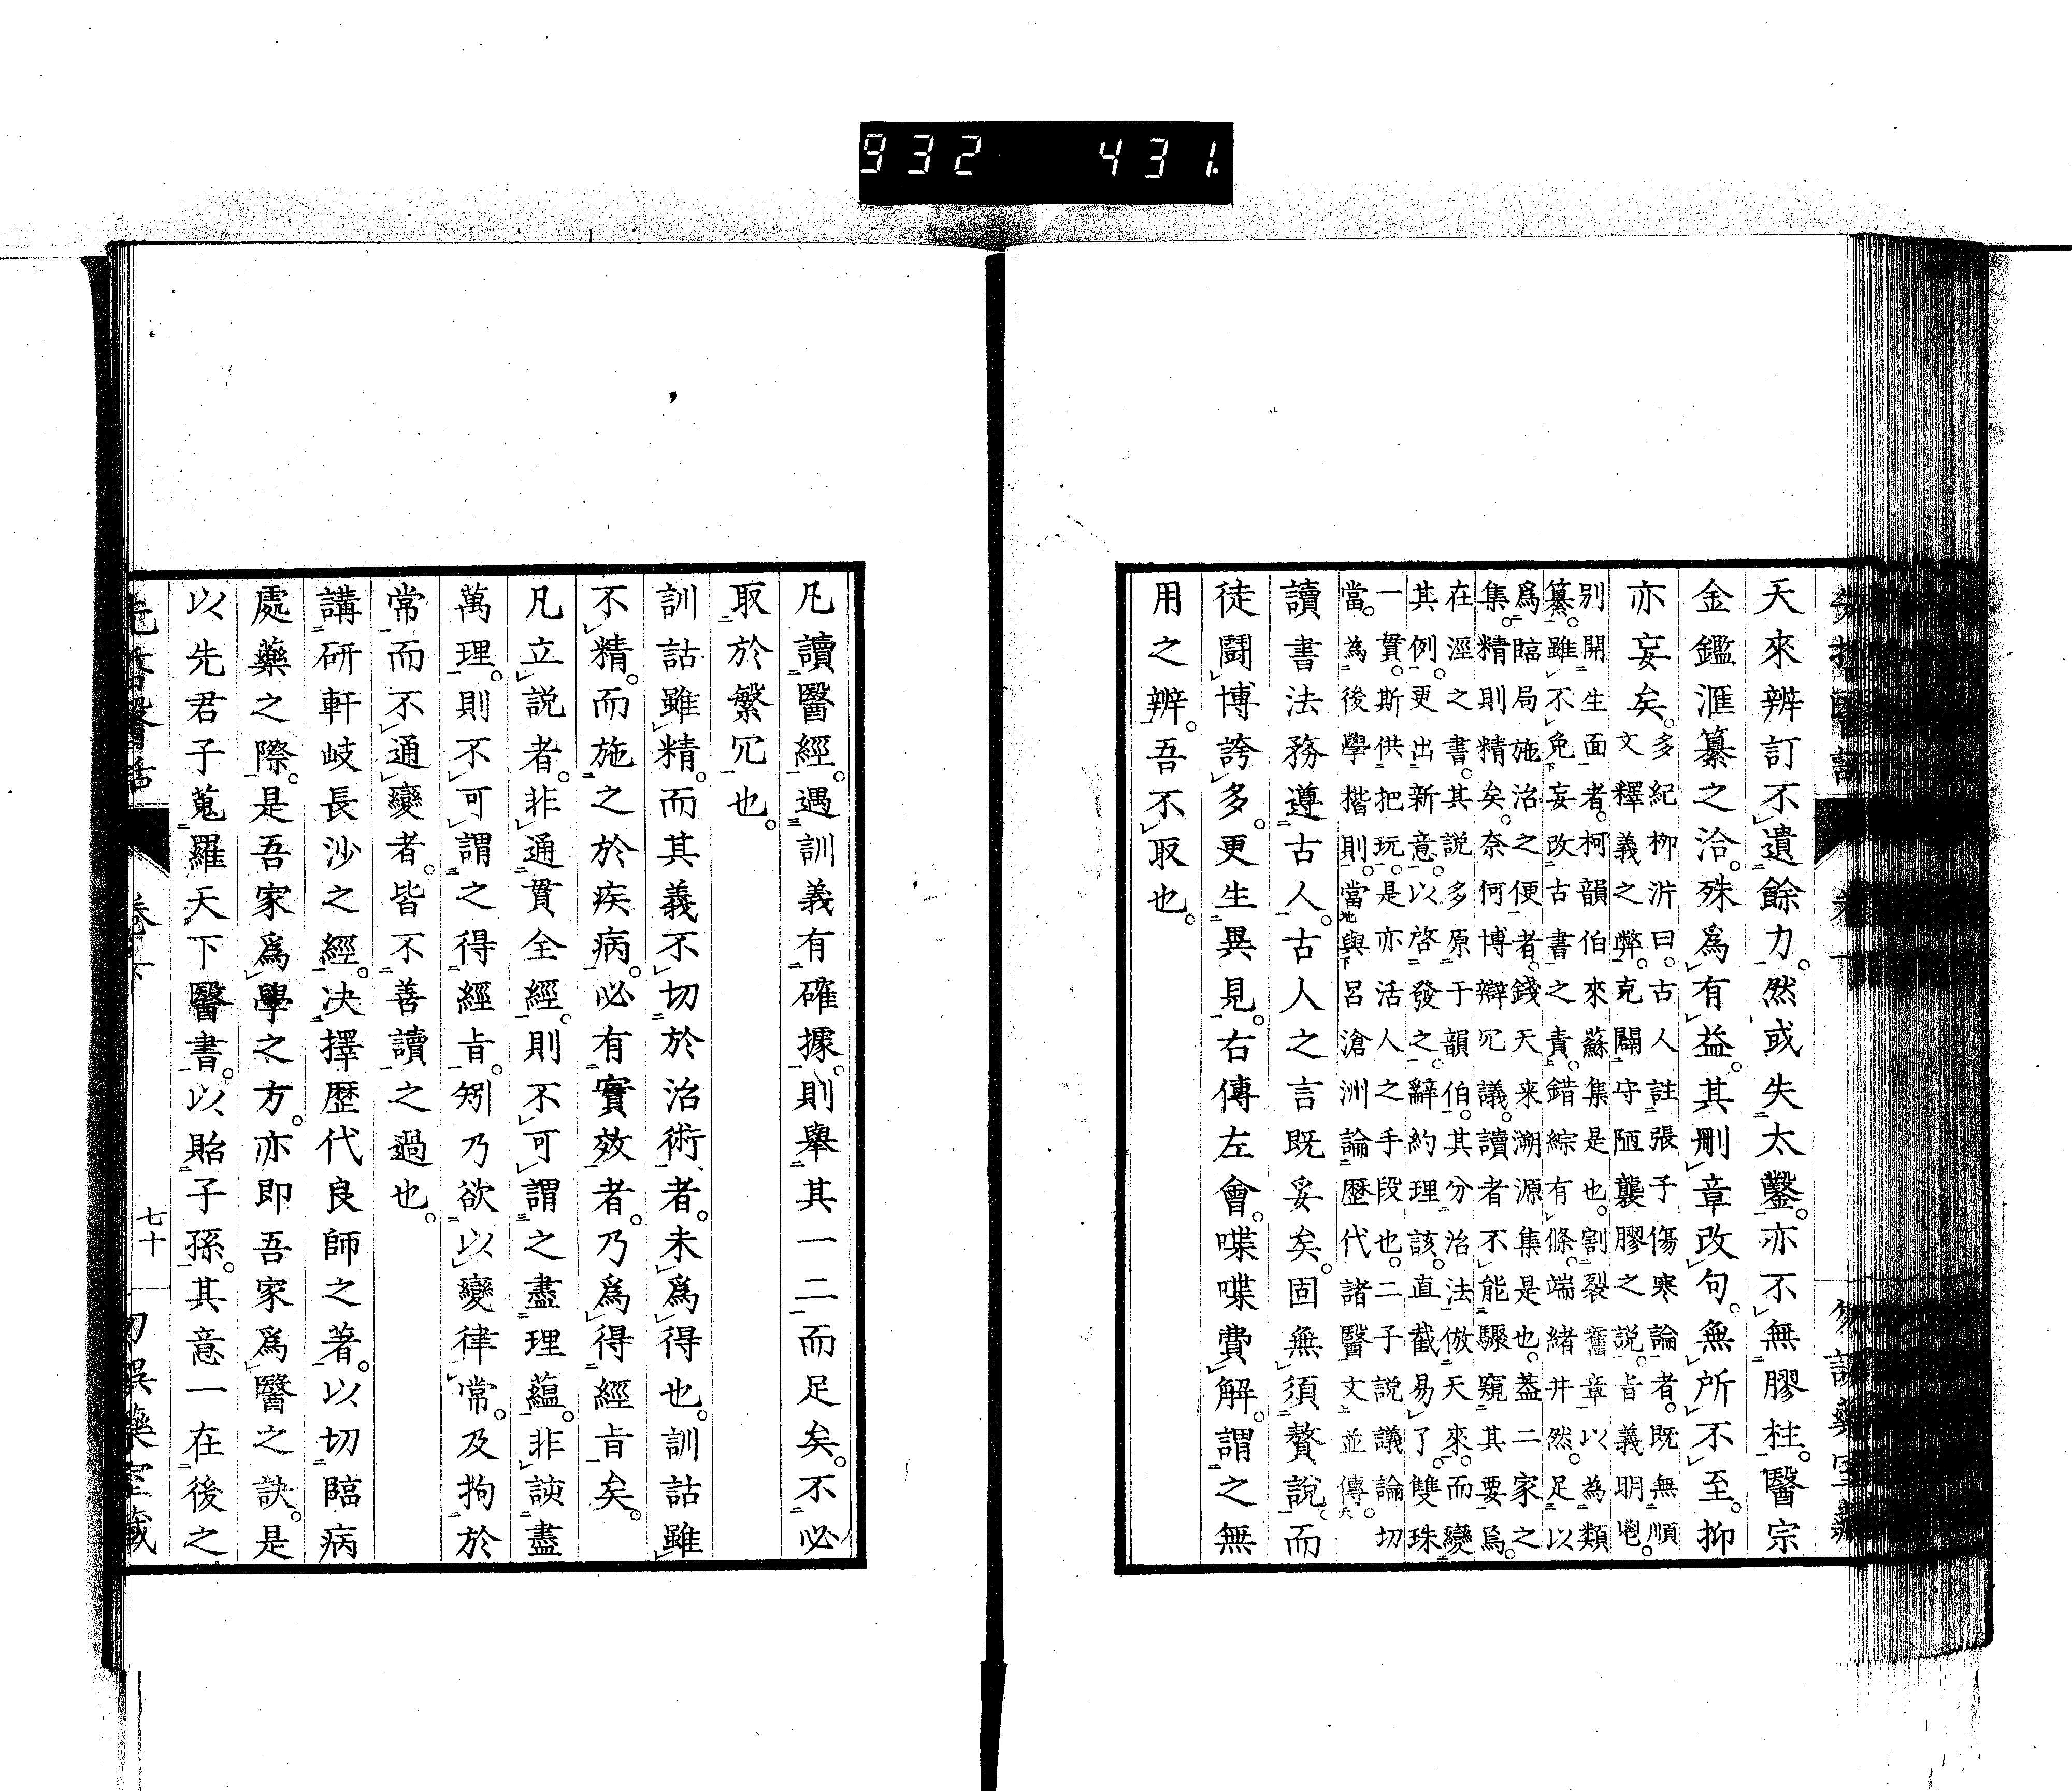 932 431.
天來辨訂不遺餘力。然或失太鑿。亦不無膠柱。醫宗
金鑑滙纂之洽。殊爲有益。其刪章改句。無所不至。抑
亦妄矣。
多紀柳沜曰。古人註張子傷寒論者。既無順
文釋義之弊。克闢守陋襲膠之説。旨義明鬯。
别開生面者。柯韻伯來蘇集是也。割裂舊章以為類
纂。雖不免妄改古書之責。錯綜有條。端緒井然。足以
爲臨局施治之便者。錢天来溯源集是也。葢二家之
集。精則精矣。奈何博辯冗議。讀者不能驟窺其要焉。
在涇之書。其説多原于韻伯。其分治法倣天來。而變
其例。更出新意。以啓發之。辭約理該。直截易了。雙珠
一貫。斯供把玩。是亦活人之手段也。二子説議論切
當。為後學揩則。當與呂滄洲論歷代諸醫文並傳。
讀書法務遵古人。古人之言既妥矣。固無須贅說。而
徒鬪博誇多。更生異見。右傳左會。喋喋費解。謂之無
用之辨。吾不取也。
凡讀醫經。遇訓義有確據。則舉其一二而足矣。不必
取於繁冗也。
訓詁雖精。而其義不切於治術者。未爲得也。訓詁雖
不精。而施之於疾病。必有實效者。乃爲得經旨矣。
凡立説者。非通貫全經。則不可謂之盡理蘊。非諛盡
萬理。則不可謂之得經旨。矧乃欲以變律常。及拘於
常而不通變者。皆不善讀之過也。
講研軒岐長沙之經。决擇歷代良師之著。以切臨病
處藥之際。是吾家爲學之方。亦即吾家爲醫之訣。是
以先君子蒐羅天下醫書。以貽子孫。其意一在後之
七十